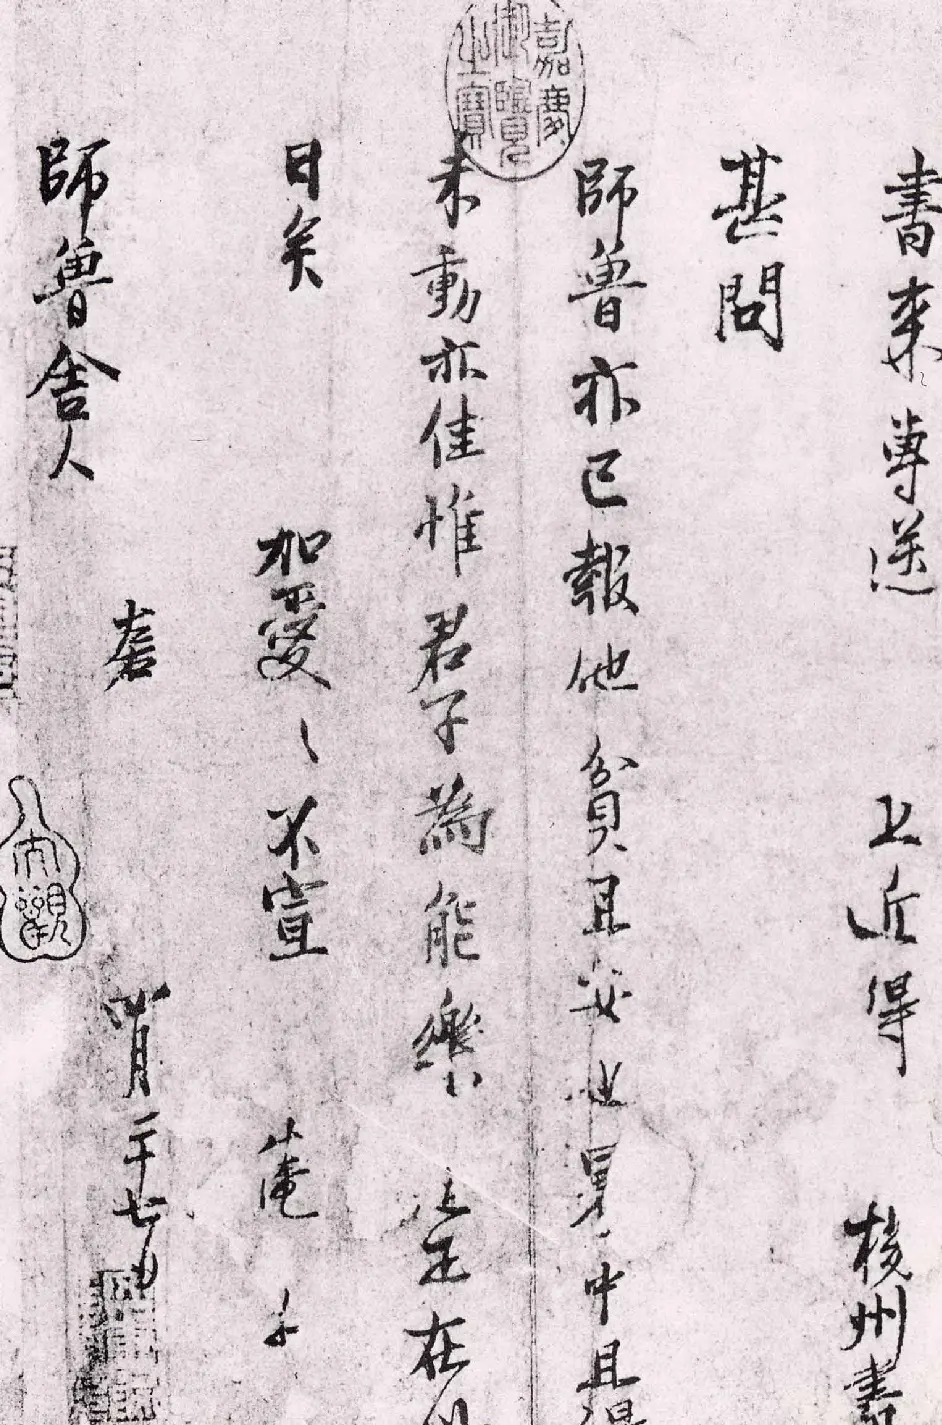 嘉慶御覽之寶
書來專送上近得揚州書
甚問
師魯亦已報他貧且安也暑中且得
未動亦佳惟君子為能樂道正在
日矣加愛〻不宣
四月二十七日
師魯舍人
大觀